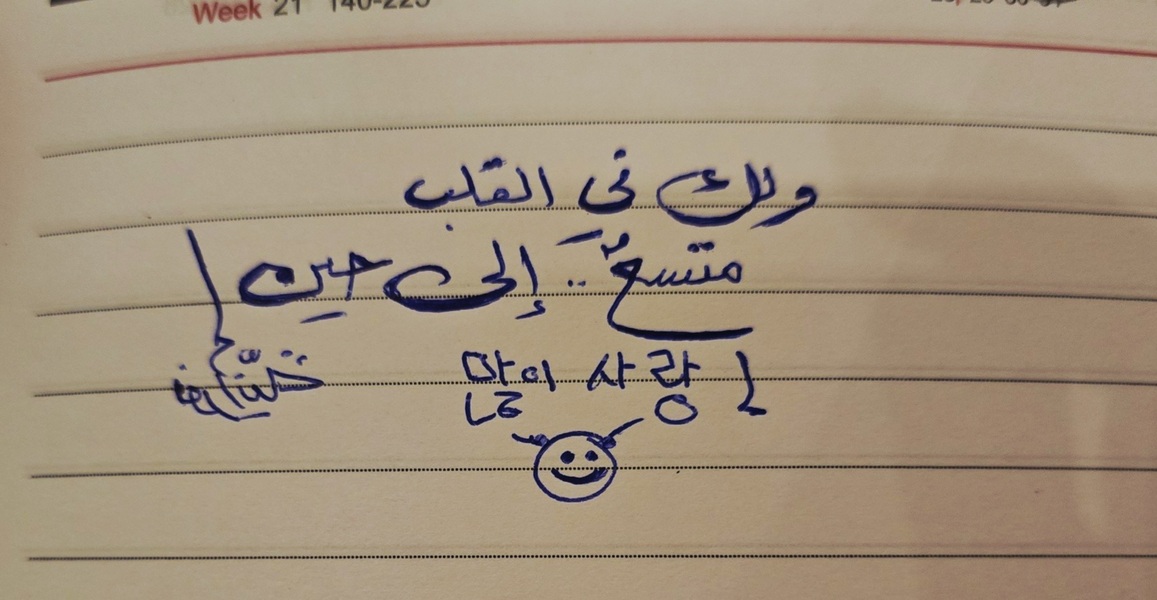 Week 21 140-225
ولك في القلب
متسعٌ .. إلى حين
많이 사랑